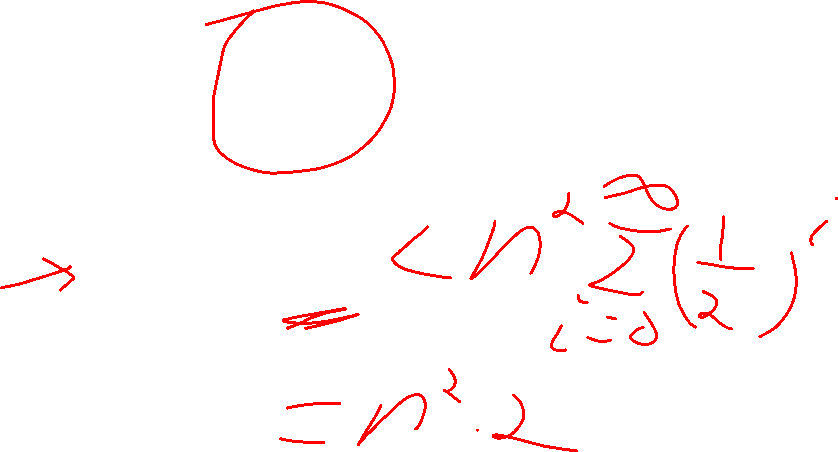 < n² ∑_{i=0}^{∞} (1/2)^i
=
= n² · 2